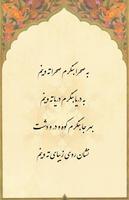 به صحرا بنگرم صحرا ته وینم
به دریا بنگرم دریا ته وینم
بهر جا بنگرم کوه و در و دشت
نشان روی زیبای ته وینم